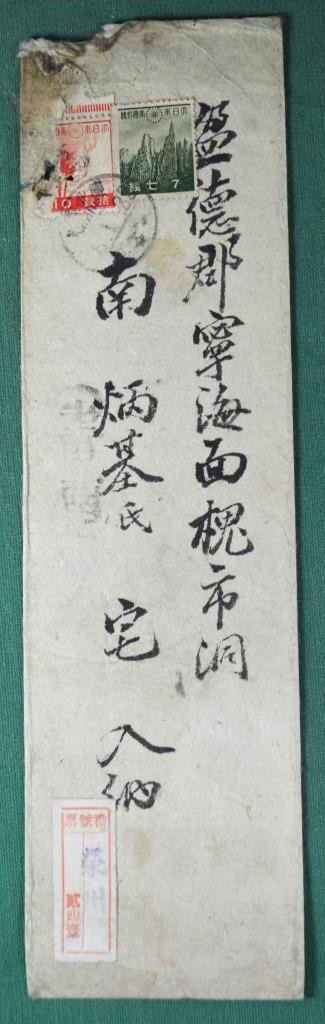 盈德郡寧海面槐市洞
南炳基氏 宅 入納
大日本帝國郵便
7 七銭
大日本帝國郵便
10 拾銭
票號番
榮州
貳四壹